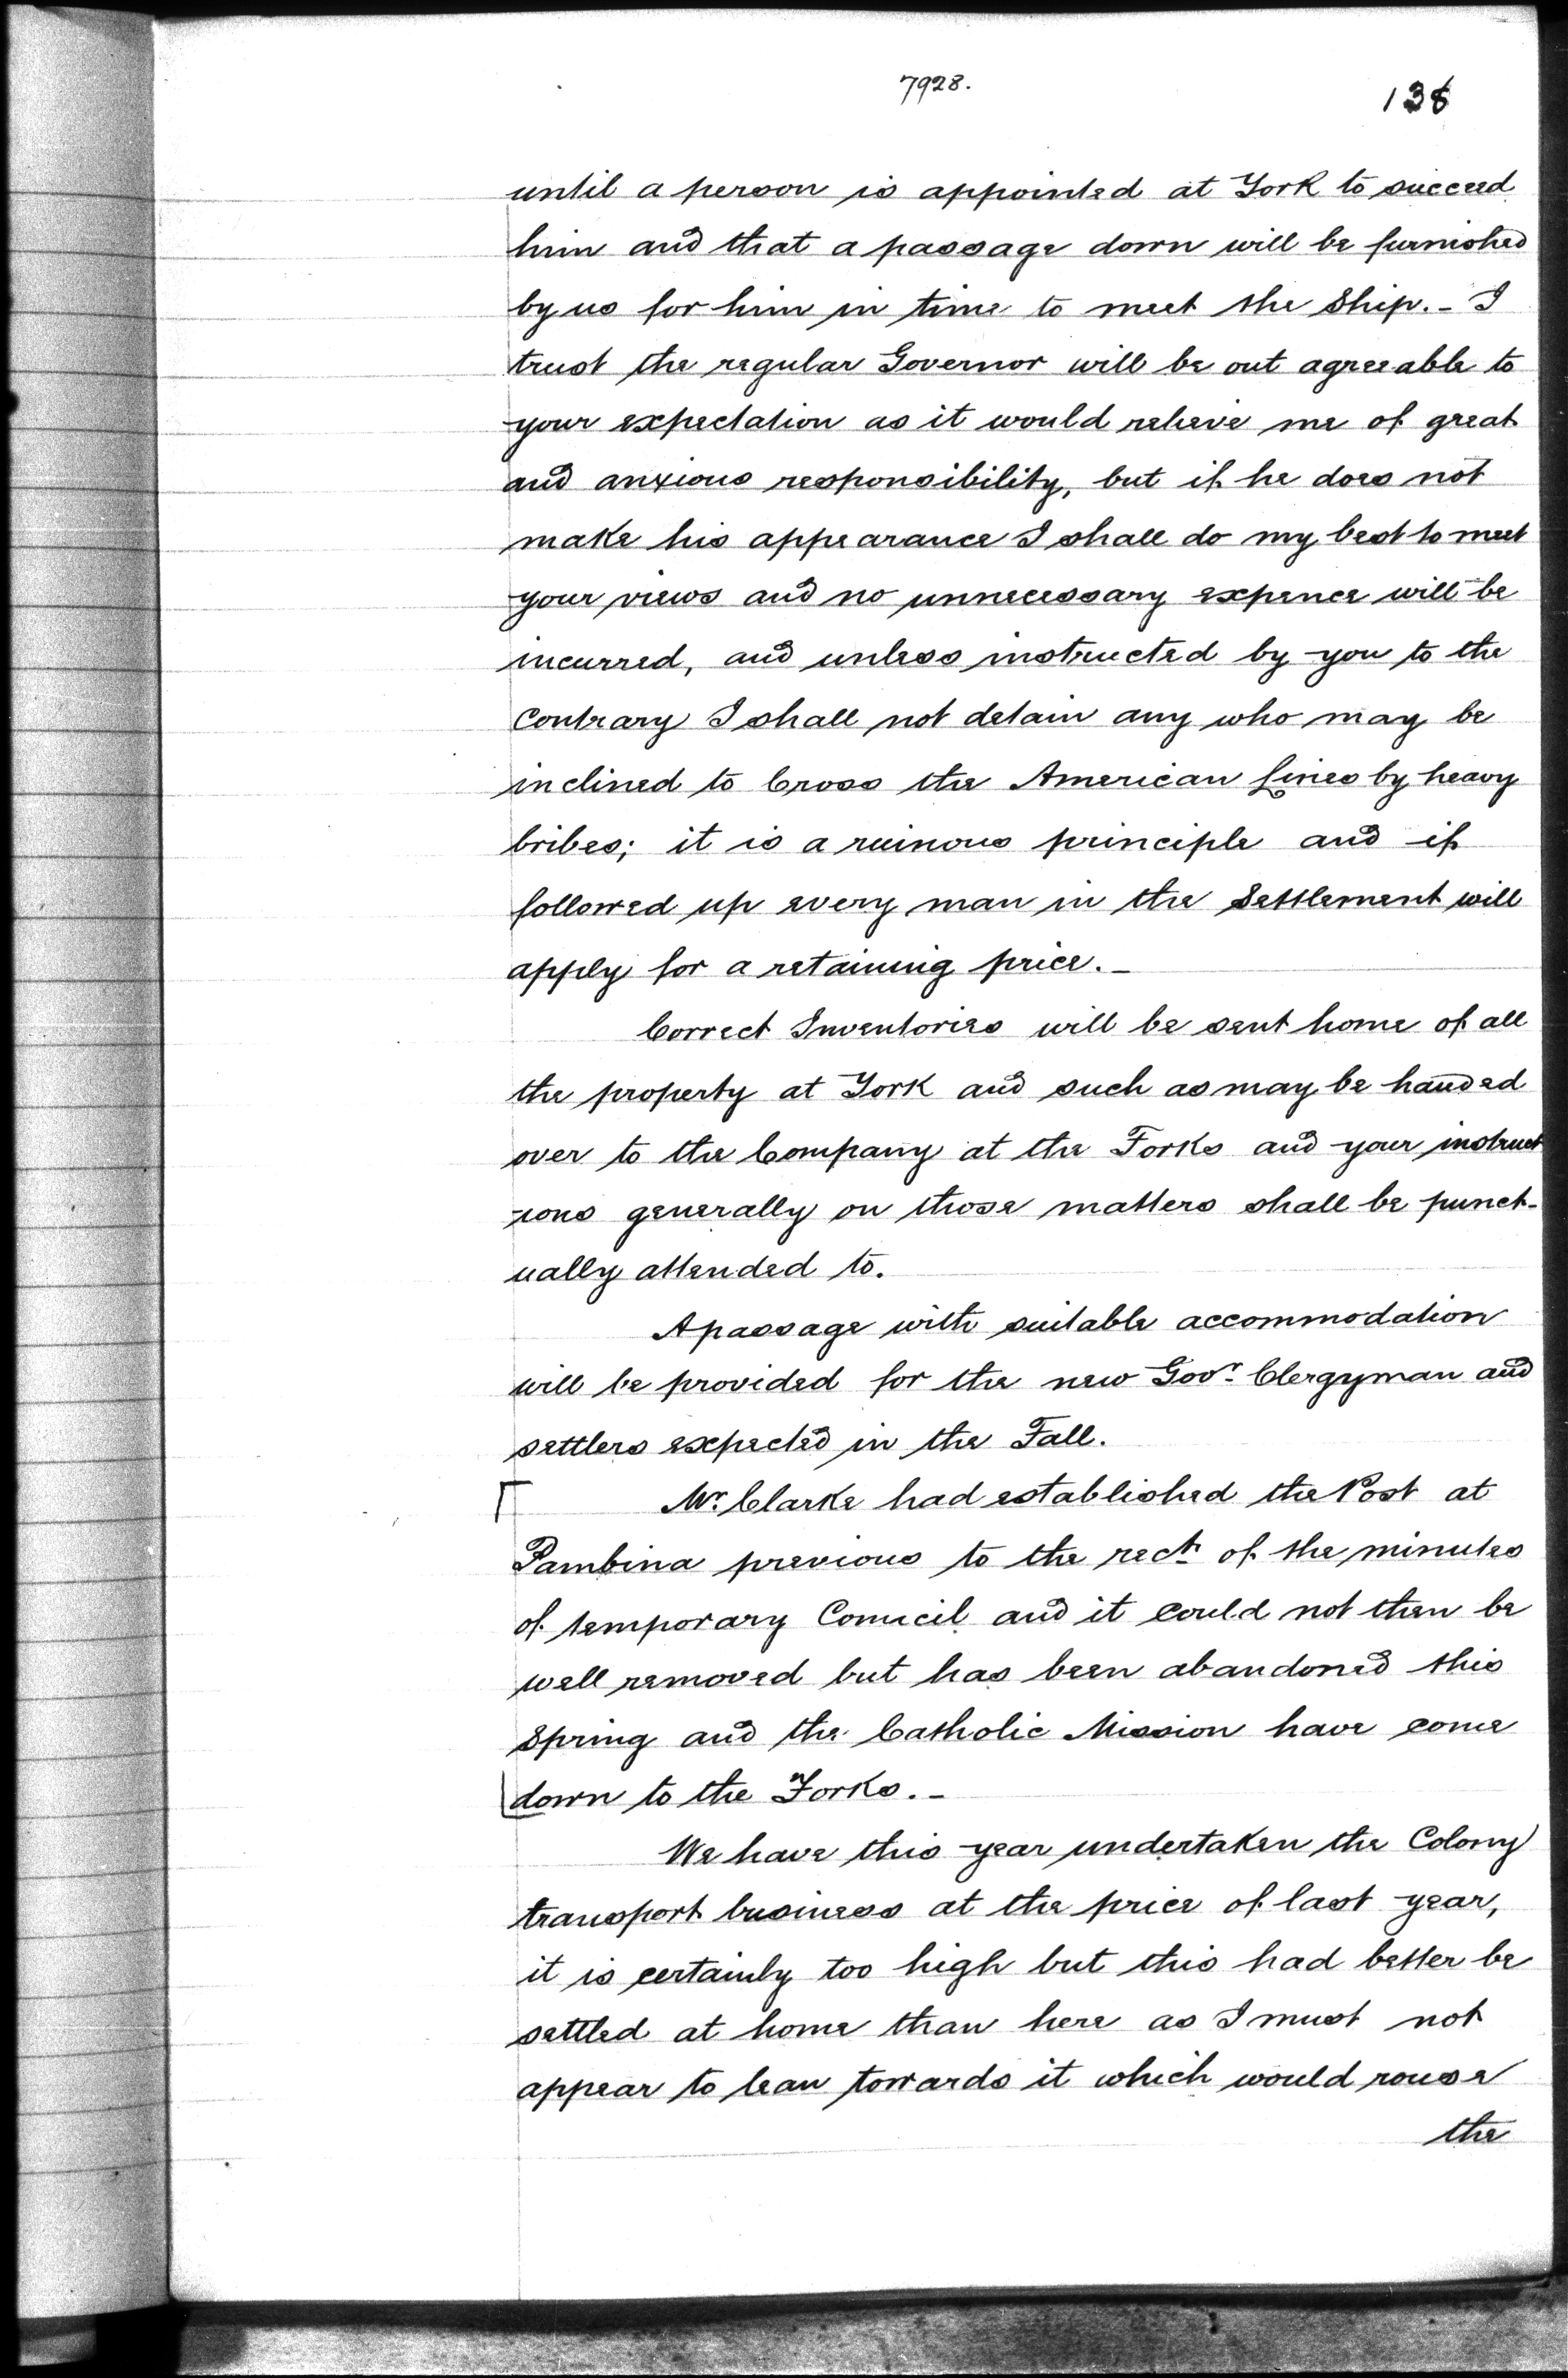 7928.
until a person is appointed at York to succeed
him and that a passage down will be furnished
by us for him in time to meet the Ship. - I
trust the regular Governor will be out agreeable to
your expectation as it would relieve me of great
and anxious responsibility, but if he does not
make his appearance I shall do my best to meet
your views and no unnecessary expence will be
incurred, and unless instructed by you to the
Contrary I shall not detain any who may be
inclined to Cross the American Lines by heavy
bribes; it is a ruinous principle and if
followed up every man in the Settlement will
apply for a retaining price. -
Correct Inventories will be sent home of all
the property at York and such as may be handed
over to the Company at the Forks and your instruct
-ions generally on those matters shall be punct-
ually attended to.
A passage with suitable accommodation
will be provided for the new Govr. Clergyman and
settlers expected in the Fall.
Mr. Clarke had established the Post at
Pambina previous to the rect. of the minutes
of temporary Council and it could not then be
well removed but has been abandoned this
Spring and the Catholic Mission have come
down to the Forks. -
We have this year undertaken the Colony
transport business at the price of last year,
it is certainly too high but this had better be
settled at home than here as I must not
appear to lean towards it which would rouse
the